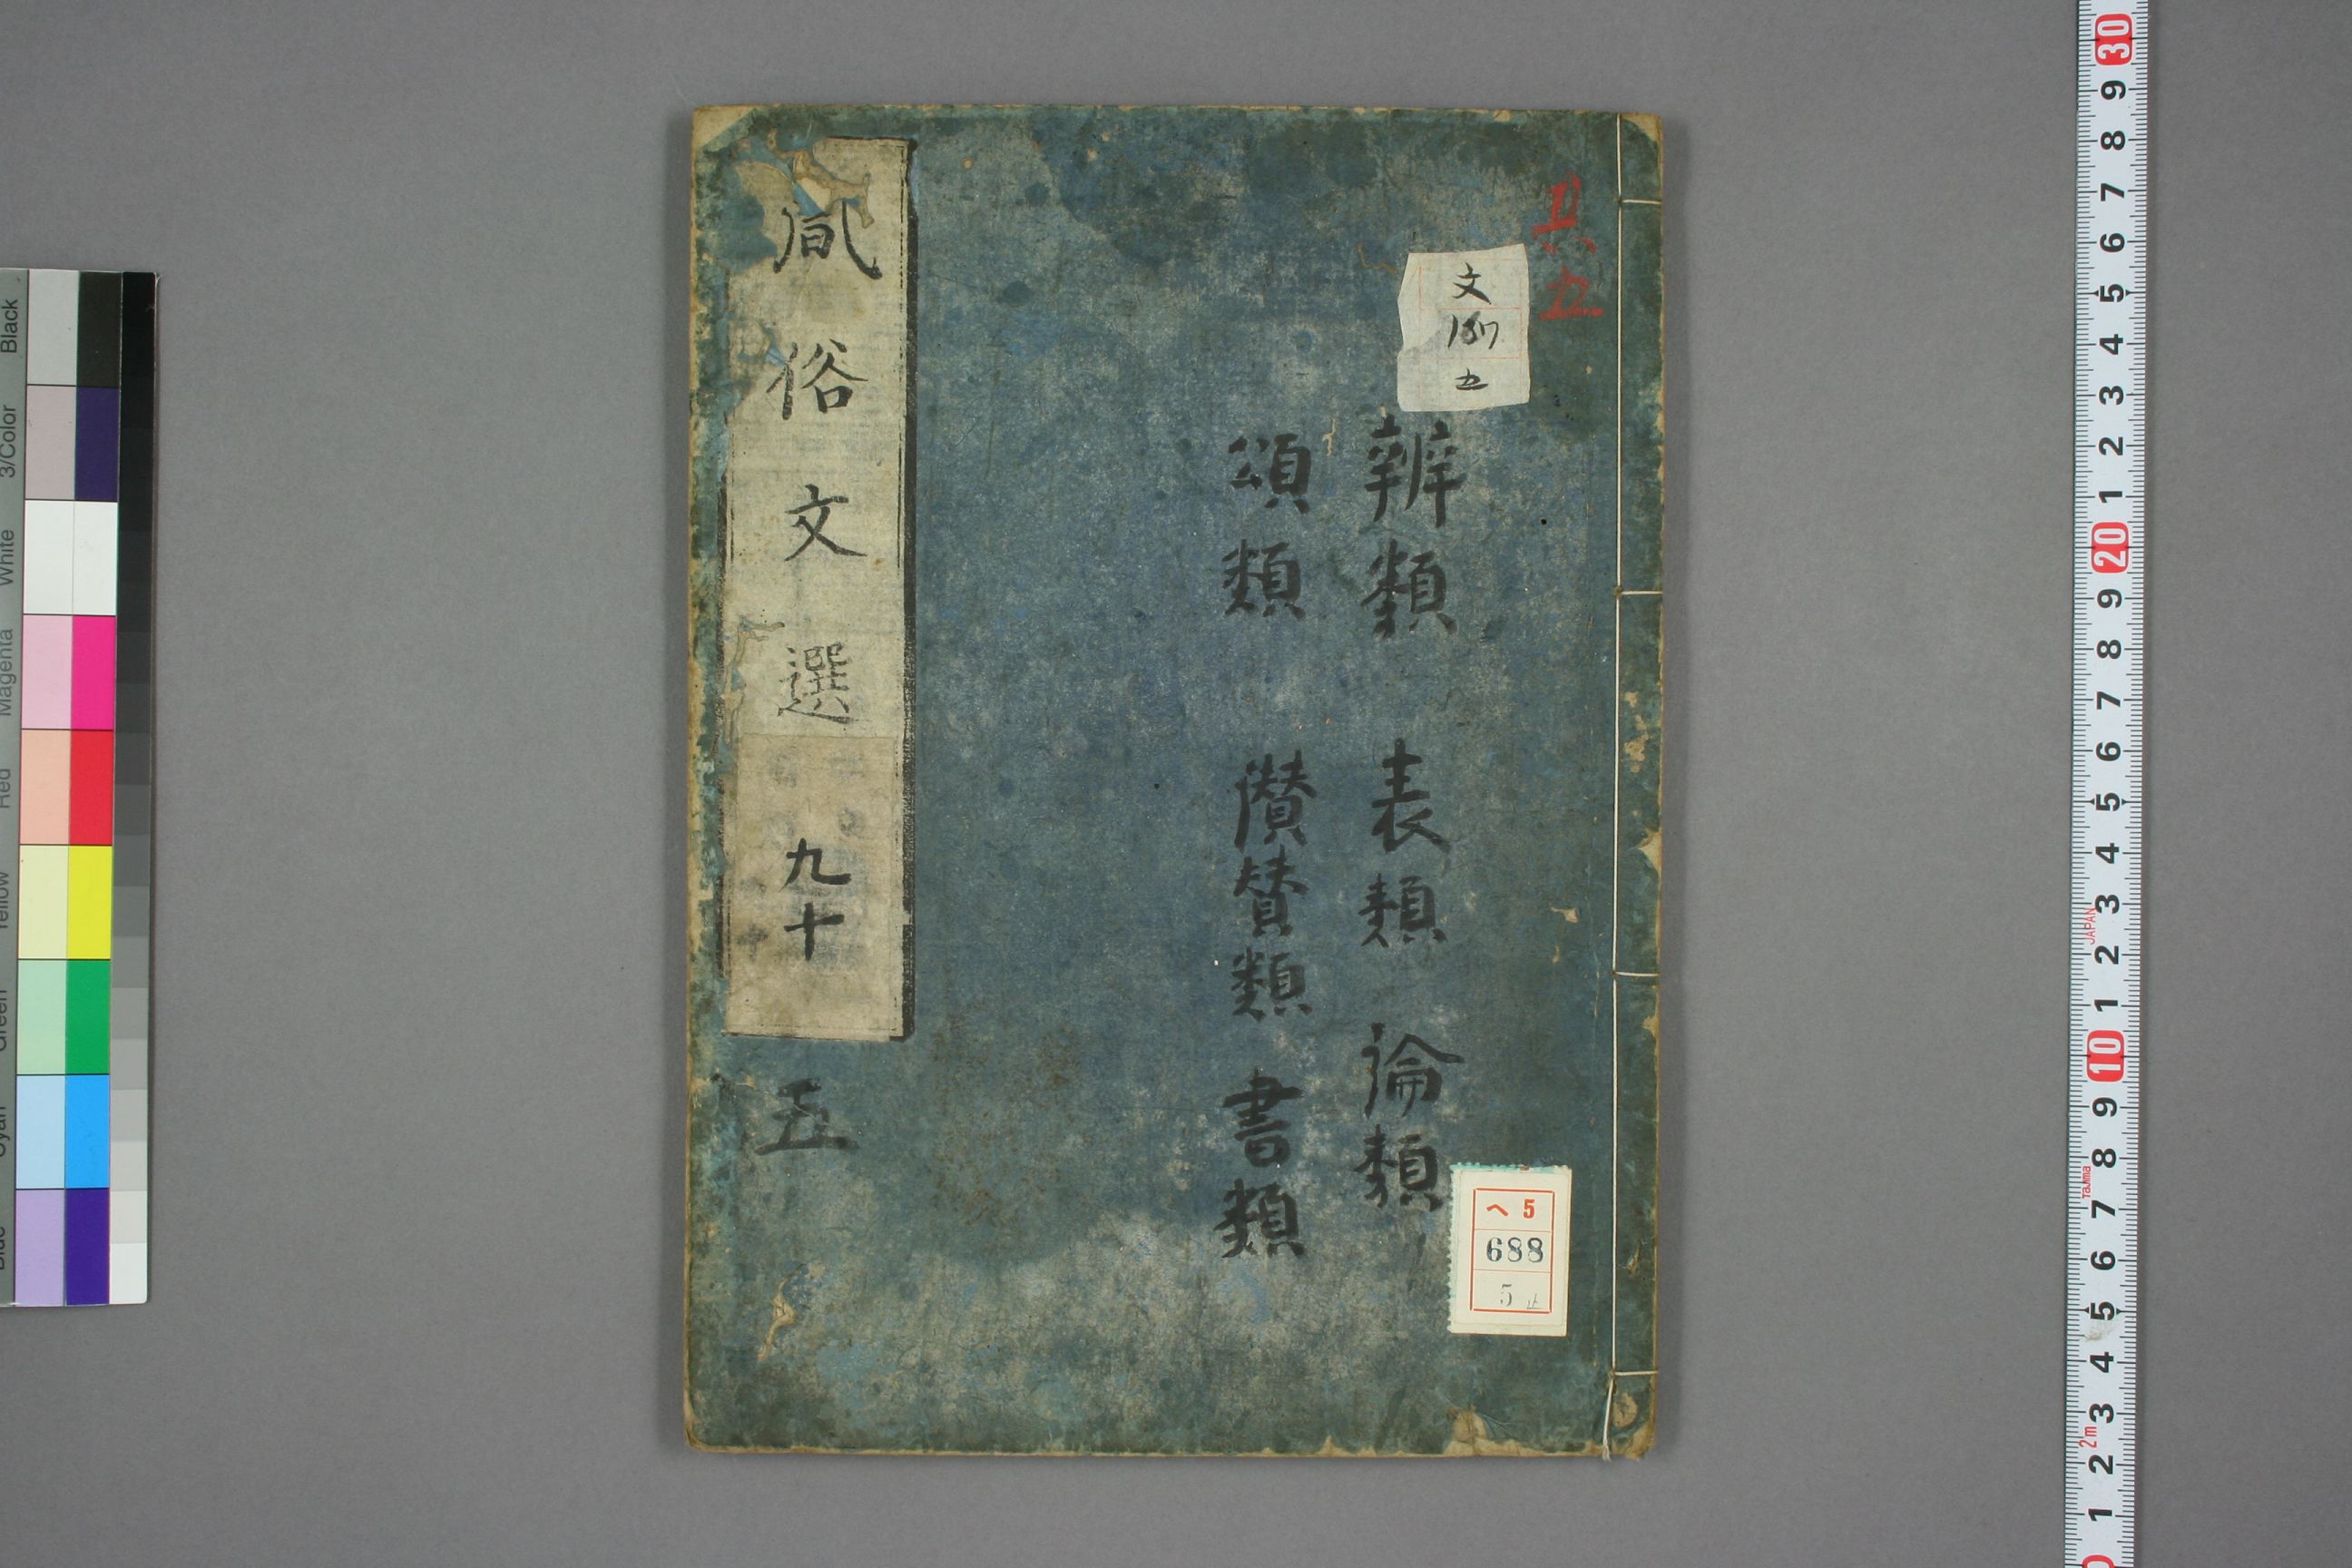 其五
文
五
辨類 表類 論類
頌類 讃賛類 書類
へ5
688
5 止
風俗文選 九十
五
30
9
8
7
6
5
4
3
2
1
20
9
8
7
6
5
4
3
JAPAN
2
1
10
9
8
Tajima
7
6
5
4
3
2m
2
1
Black
3/Color
White
Magenta
Red
Yellow
Green
Cyan
Blue